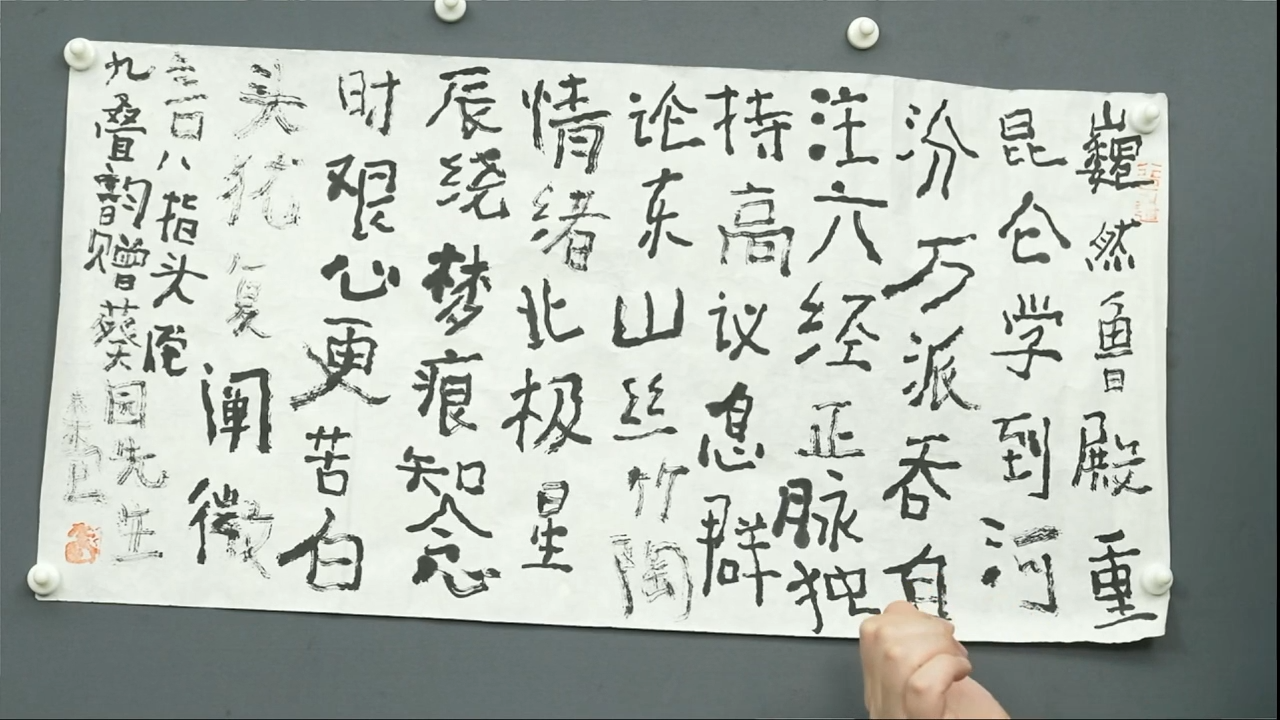 巍然鲁殿重
昆仑学到河
汾万派吞自
注六经正脉独
持高议息群
论东山丝竹陶
情绪北极星
辰绕梦痕知念
时艰心更苦白
头犹复阐微
言口八指头陀
九叠韵赠葵园先生